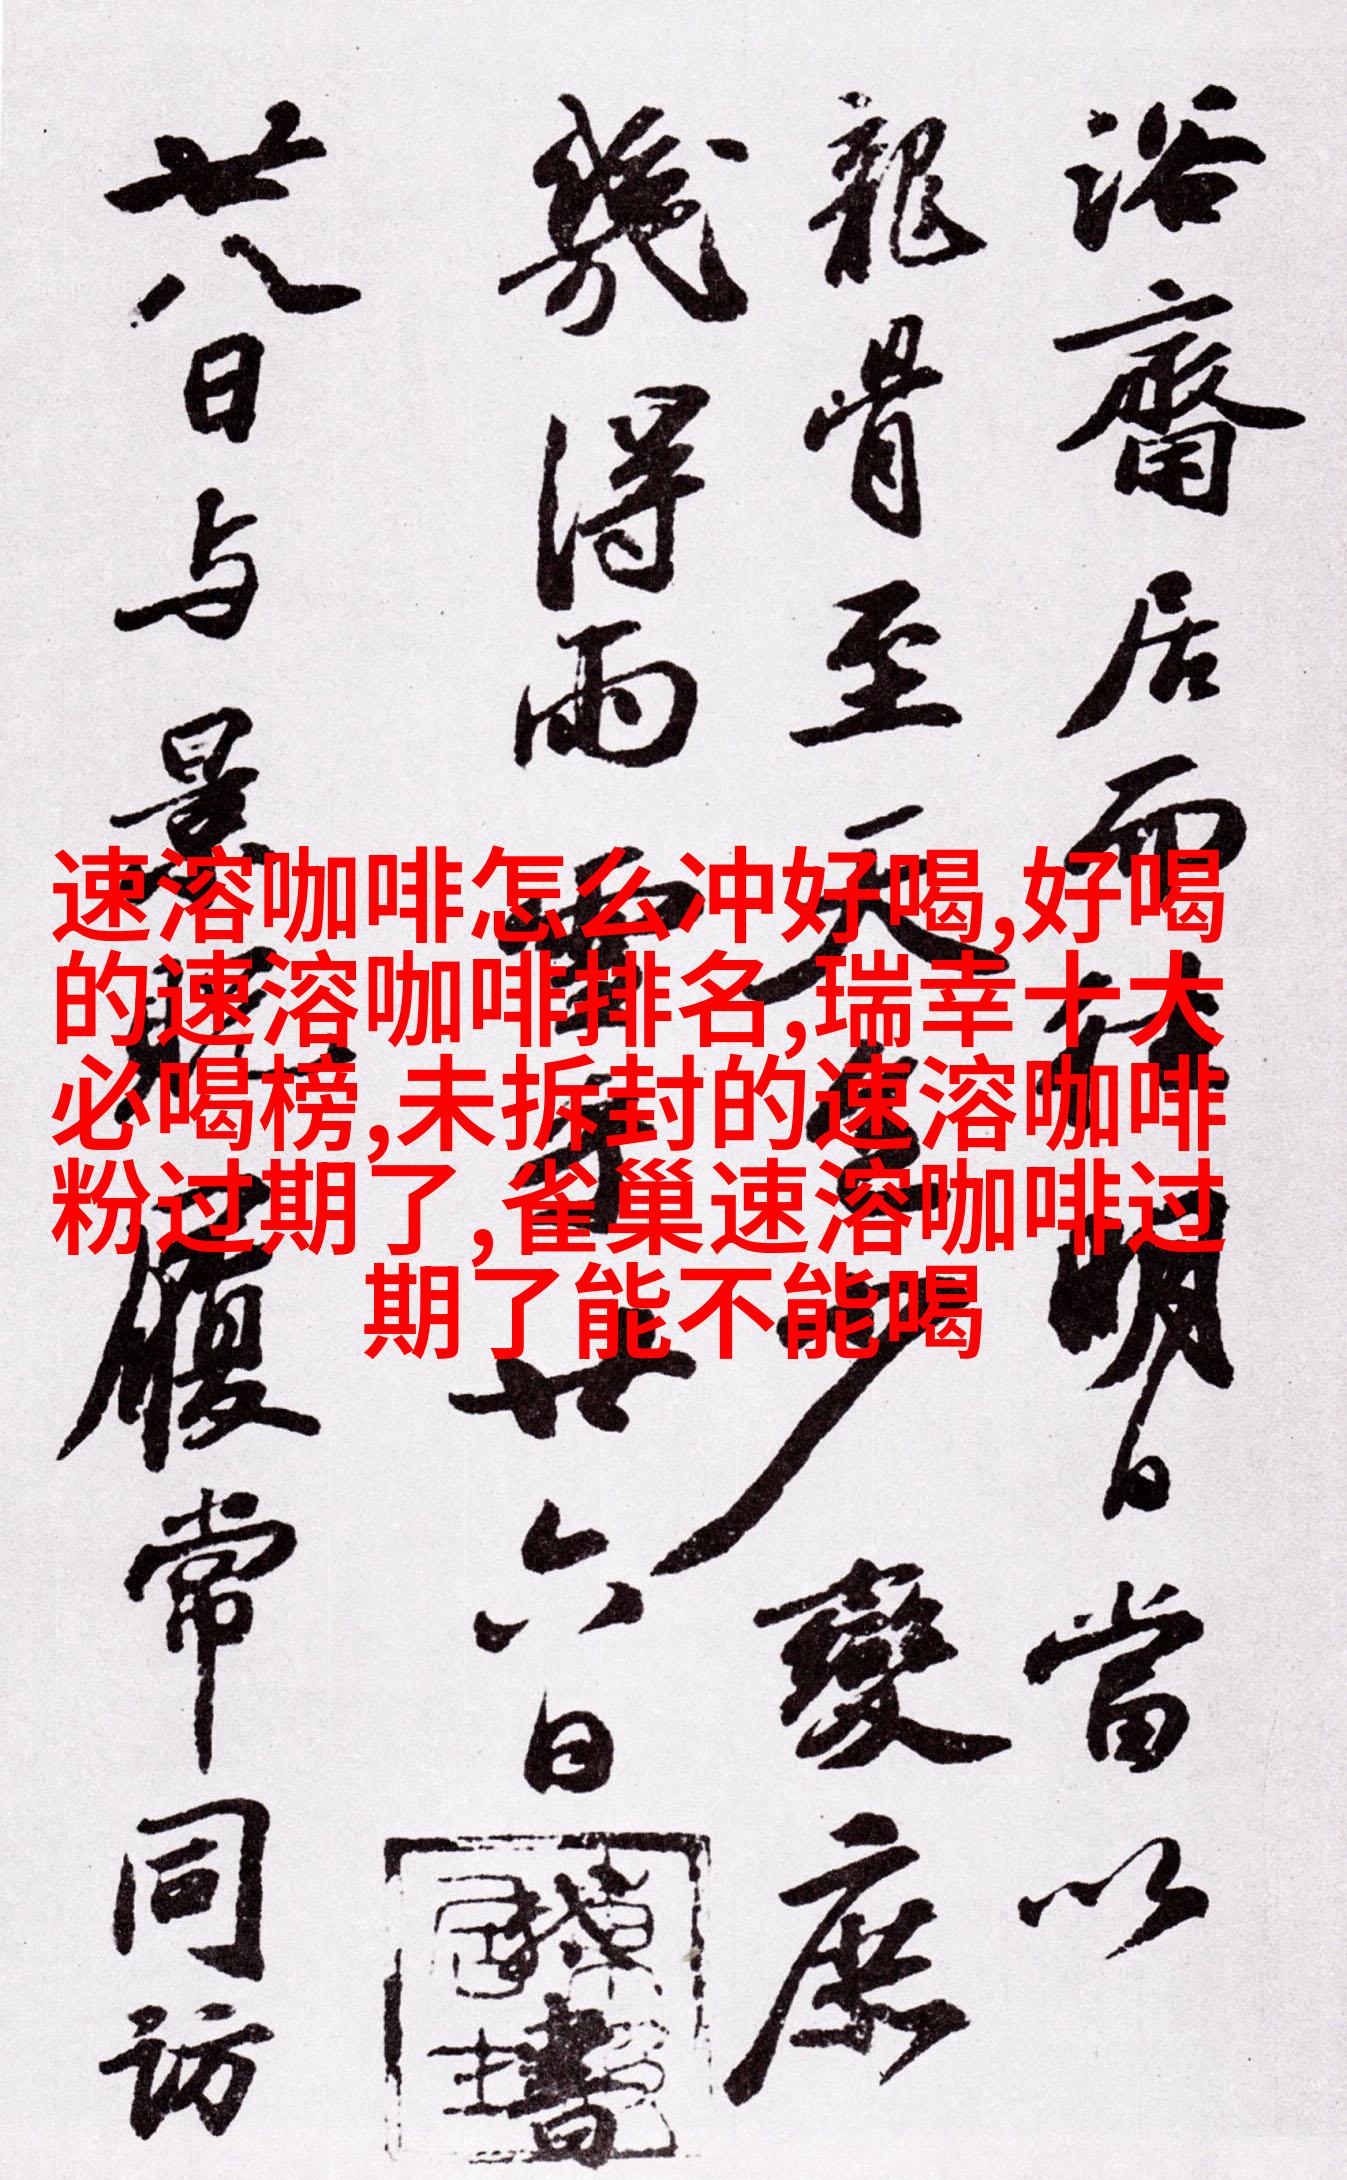 速溶咖啡怎么冲好喝,好喝
的速溶咖啡排名,瑞幸十大
必喝榜,未拆封的速溶咖啡
粉过期了,雀巢速溶咖啡过
期了能不能喝
浴齋居而明日當以
龍骨至天色少變庶
幾得雨雪耳廿六日書
廿八日与景履常同訪